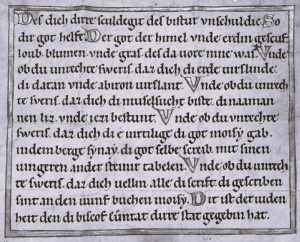 Des dich dirre sculdegit des bistur vnschuldic. So
dir got helfe. Der got der himel vnde erdin gescuf.
loub. blumen. vnde gras. des da uore nine was. Vnde
ob du unrechte sweris. daz dich di erde uirslunde.
di datan vnde abiron uirslant. Vnde ob du unrech
te sveris. daz dich di muselsucht biste. di naaman
nen liz. vnde iezi bestunt. Vnde ob du unrechte
sweris. daz dich di e uirtilige di got mosy gab.
in deme berge synay. di got selbe screib mit sinen
uingeren an der steinir tabelen. Vnde ob du unrech
te sweris. daz dich uellin. alle di scrift. di gescriben
sint an den uunf buchen mosy. Dit ist der iuden
heit den di biscof Cuntat dirre stat gegebin hat.